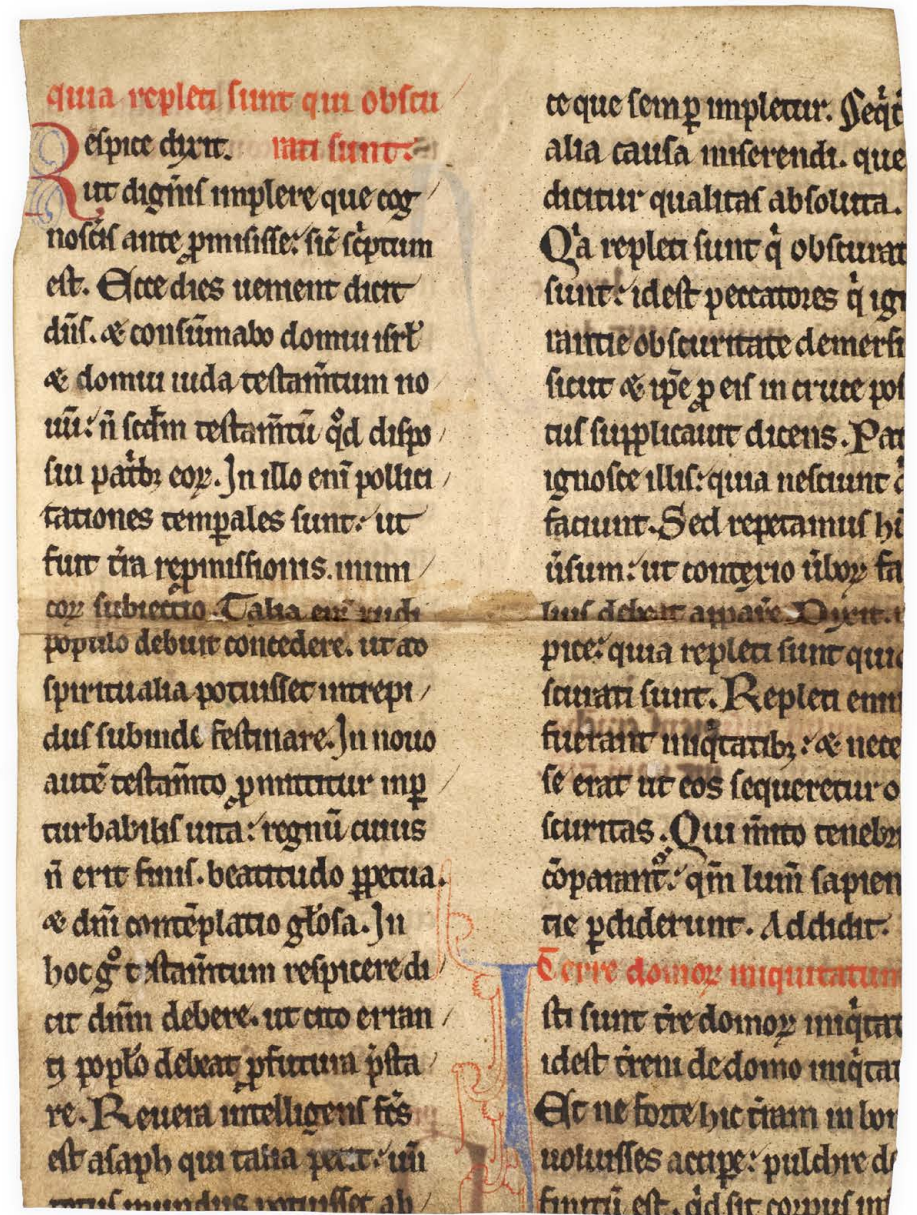 quia repleti sunt qui obscu
Respice dixit. rati sunt:
ut digneris implere que cog
noscis ante ꝓmisisse: sic̄ sc̄ptum
est. Ecce dies ueniunt dicit
dn̄s. & consum̄abo domui isrl̄
& domui iuda testam̄tum no
uū: n̄ scd̄m testam̄tū qͦd dispo
sui patͥbꝫ eoꝝ. In illo enī pollici
tationes temꝑales sunt: ut
fuit tr̄a reꝓmissionis. inimi
coꝝ subiectio. Talia enī rudi
populo debuit concedere. ut ad
spiritualia potuisset intrepi
dus subinde festinare. In nouo
autē testam̄to ꝓmittitur inꝑ
turbabilis uita: regnū cuius
n̄ erit finis. beatitudo ꝑpetua.
& dn̄i contēplatio gl̄osa. In
hoc gͦ testam̄tum respicere di
cit dn̄m debere. ut cito erran
ti popl̄o debeat ꝓfutura p̄sta
re. Reuera intelligens fr̄s
est asaph qui talia petit: un̄
totus mundus potuisset ab
te que semꝑ impletur. Seqͥt
alia causa miserendi. que
dicitur qualitas absoluta.
Qͥa repleti sunt qͥ obscurat
sunt: idest peccatores qͥ ig
rantie obscuritate demersi
sicut & ip̄e ꝓ eis in cruce pos
tus suꝑplicauit dicens. Pat
ignosce illis: quia nesciunt
faciunt. Sed repetamus
ūsum: ut contexio ūboꝝ fa
ius debeat appar̄e. Dixit.
pice: quia repleti sunt qui
scurati sunt. Repleti enim
fuerant iniqͥtatibꝫ: & nece
se erat ut eos sequeretur o
scuritas. Qui m̄ito tenebr
cōparant͛: qm̄ lum̄ sapien
tie ꝑdiderunt. Addidit.
Terre domoꝝ iniquitatum
Isti sunt tr̄e domoꝝ iniqͥtat
idest tr̄eni de domo iniqͥtat
Et ne forte hic tr̄am in bon
uoluisses accipe: pulchre de
finitū est. qͥd sit corpus